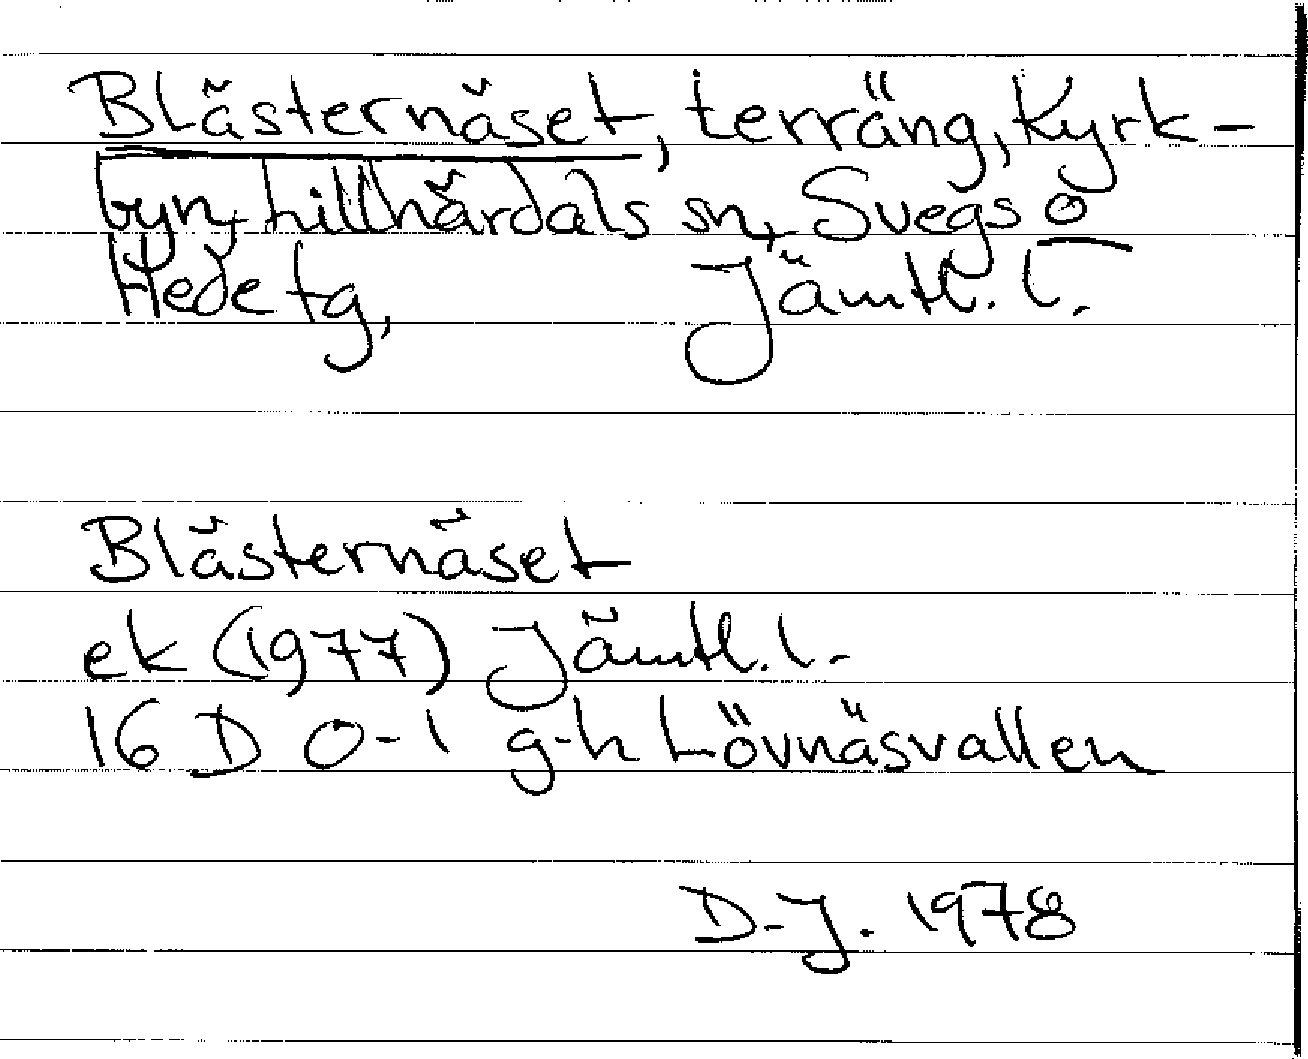 Blästernäset, terräng, Kyrk-
byn, Lillhärdals sn, Svegs o
Hede tg, Jämtl. l.
Blästernäset
ek (1977) Jämtl. l.
16 D 0-1 g-h Lövnäsvallen
D-J. 1978